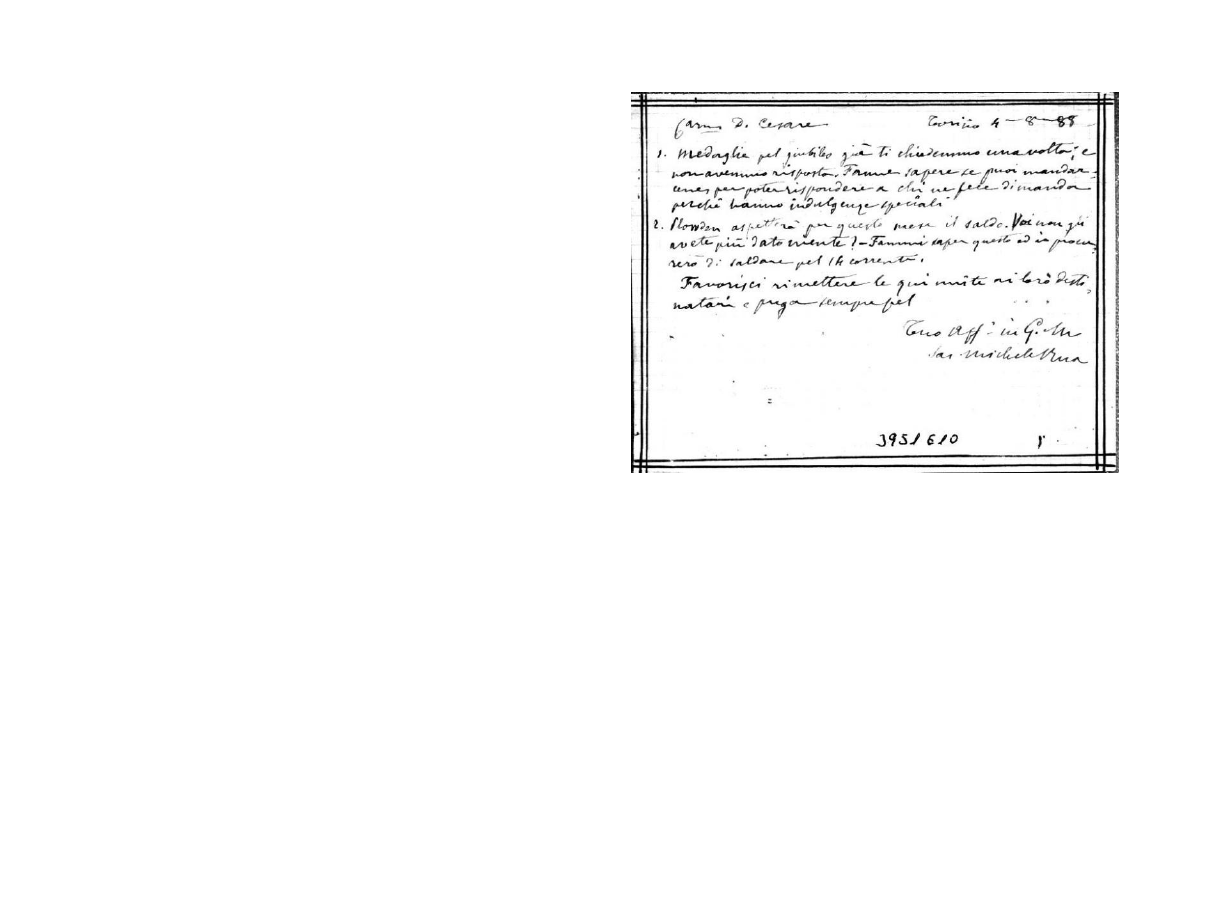 Car.mo D. Cesare Torino 4-8-88
1. Medaglie pel giubileo già ti chiedemmo una volta, e
non avemmo risposta. Fanne sapere se puoi mandar-
cene per poter rispondere a chi ne fece dimanda
perchè hanno indulgenze speciali
2. aspetterà per questo mese il saldo. Voi non gli
avete più dato niente? - Fammi saper questo ed io procu-
rerò di saldare pel 14 corrente.
Favorisci rimettere le qui unite ai loro desti-
natari e prega sempre pel
Tuo Aff.o in G. M
Sac. Michele Rua
3951 E10